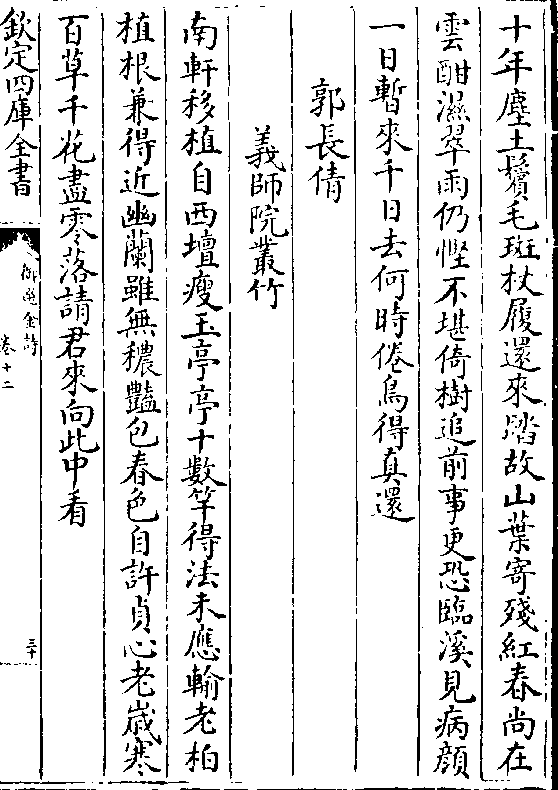 十年塵土鬢毛斑杖履還來踏故山葉寄殘紅春尚在
雲酣濕翠雨仍慳不堪倚樹追前事更恐臨溪見病顔
一日暫來千日去何時倦鳥得真還
郭長倩
義師院叢竹
南軒移植自西壇瘦玉亭亭十數竿得法未應輸老柏
植根兼得近幽蘭雖無穠豔包春色自許貞心老歲寒
百草千花盡零落請君來向此中看
欽定四庫全書
御選金詩
卷十二
三十